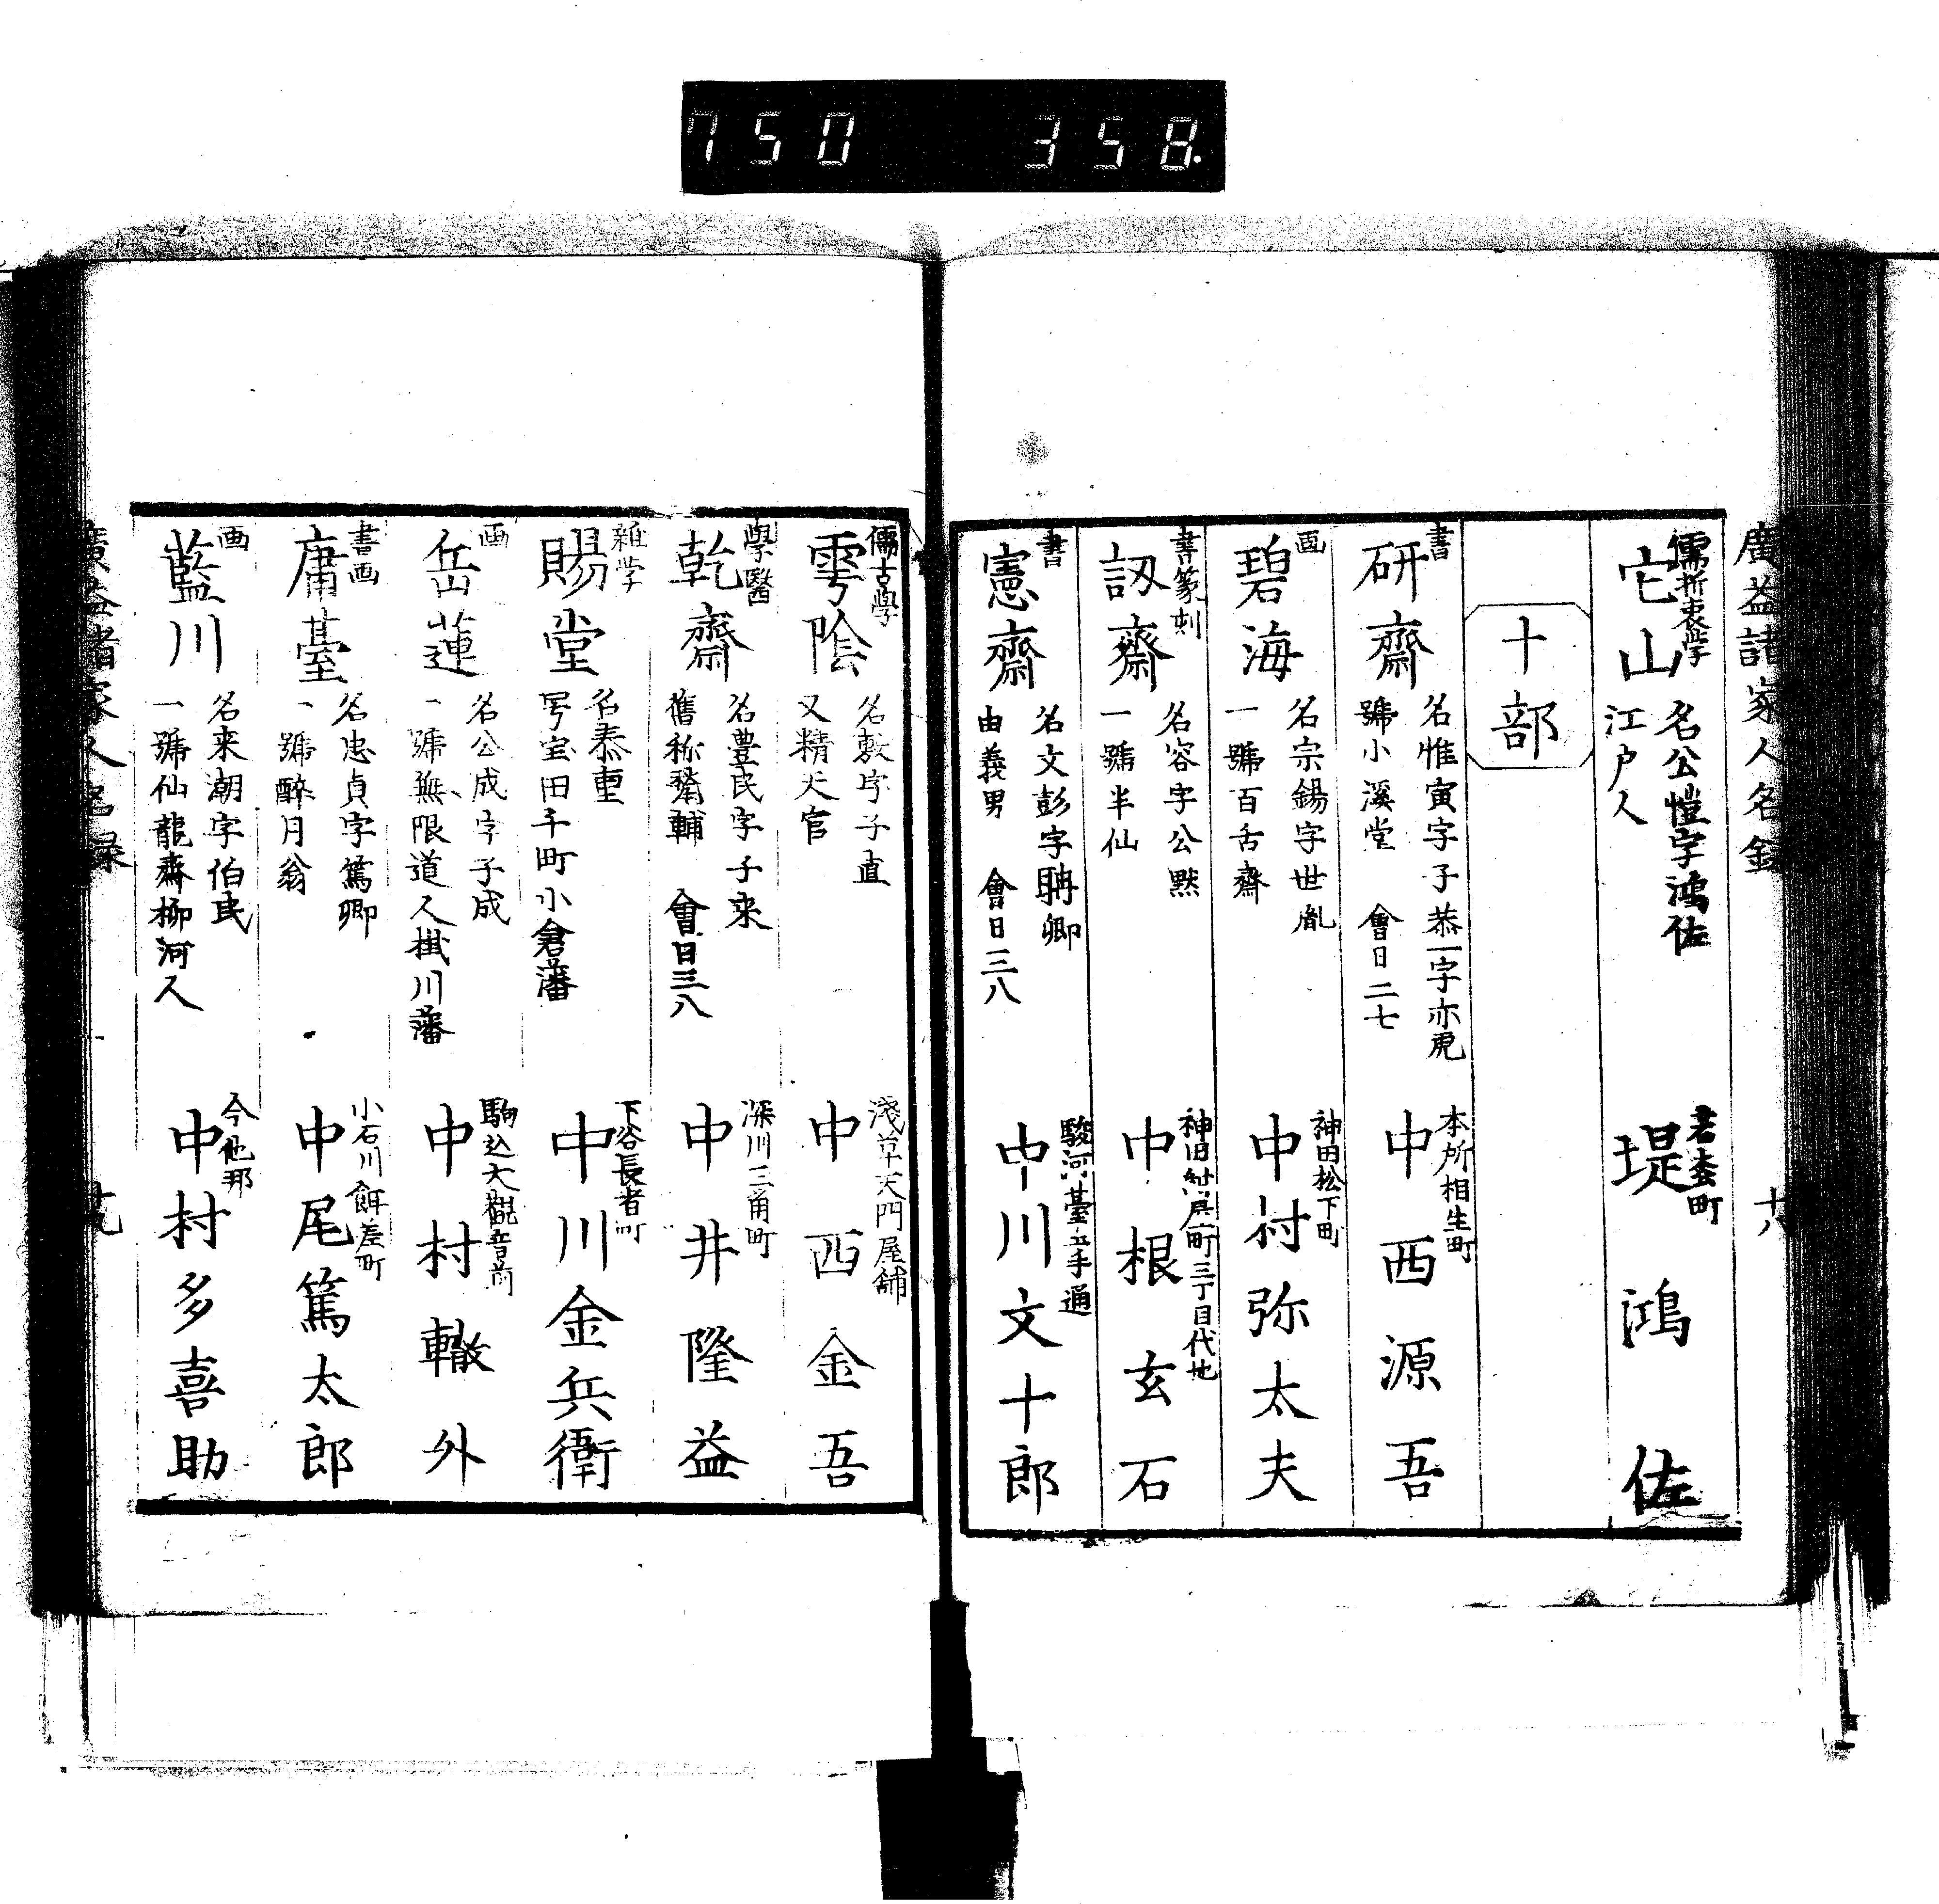 750 358.
廣益諸家人名錄
十八
儒折衷学
它山
名公愷字鴻佐
江戸人
堤鴻佐
十部
書
研齋
名惟寅字子恭一字亦虎
號小溪堂 會日二七
本所相生町
中西源吾
画
碧海
名宗錫字世胤
一號百舌齋
神田松下町
中村弥太夫
書篆刻
訒齋
名容字公默
一號半仙
町三丁目代地
中根玄石
書
憲齋
名文彭字聃卿
由義男 會日三八
駿河臺
中川文十郎
儒古學
雩陰
名敷字子直
又精天官
淺草天門屋舖
中西金吾
學醫
乾齋
名豊民字子来
舊称 輔 會日三八
深川三角町
中井隆益
雜学
賜堂
名泰重
号宝田千町小倉藩
下谷長者町
中川金兵衛
画
岳蓮
名公成字子成
一號無限道人掛川藩
駒込大觀音前
中村轍外
書画
庸臺
名忠貞字篤卿
一號醉月翁
小石川餌差町
中尾篤太郎
画
藍川
名来潮字伯民
一號仙龍齋柳河人
今他邦
中村多喜助
廣益諸家人名錄